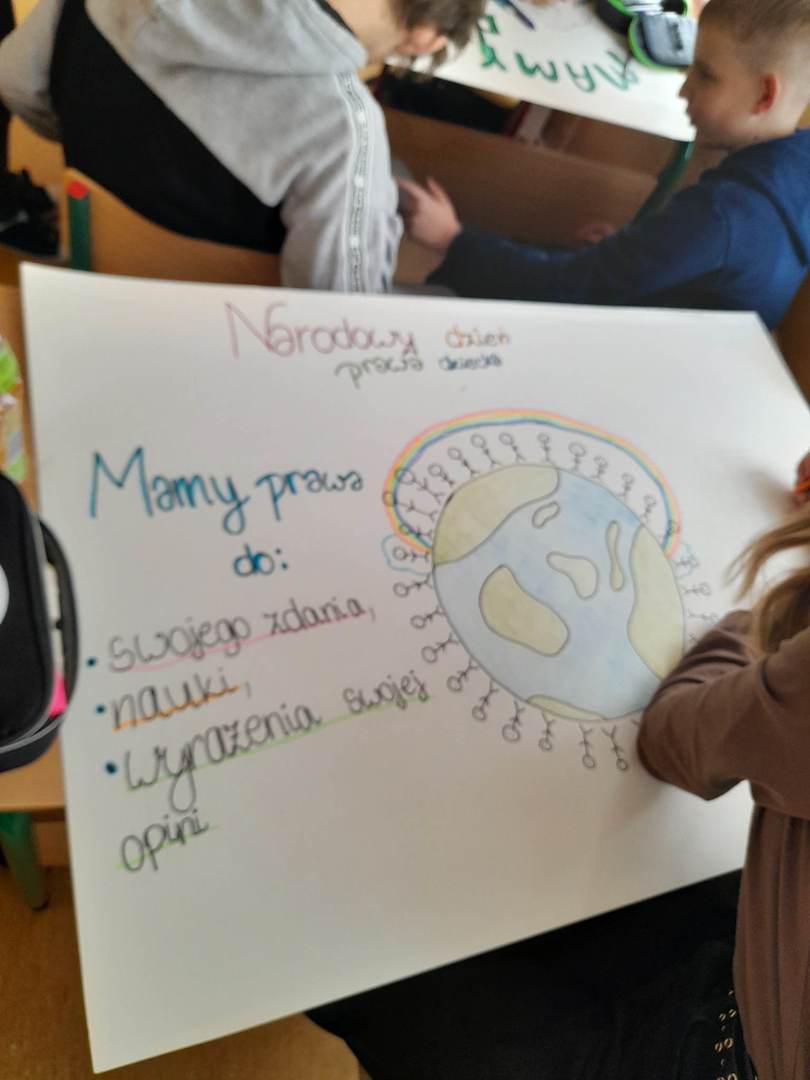 Narodowy dzień
prawa dziecka
Mamy prawa
do:
• swojego zdania,
• nauki,
• wyrażenia swojej
opini
MAMY